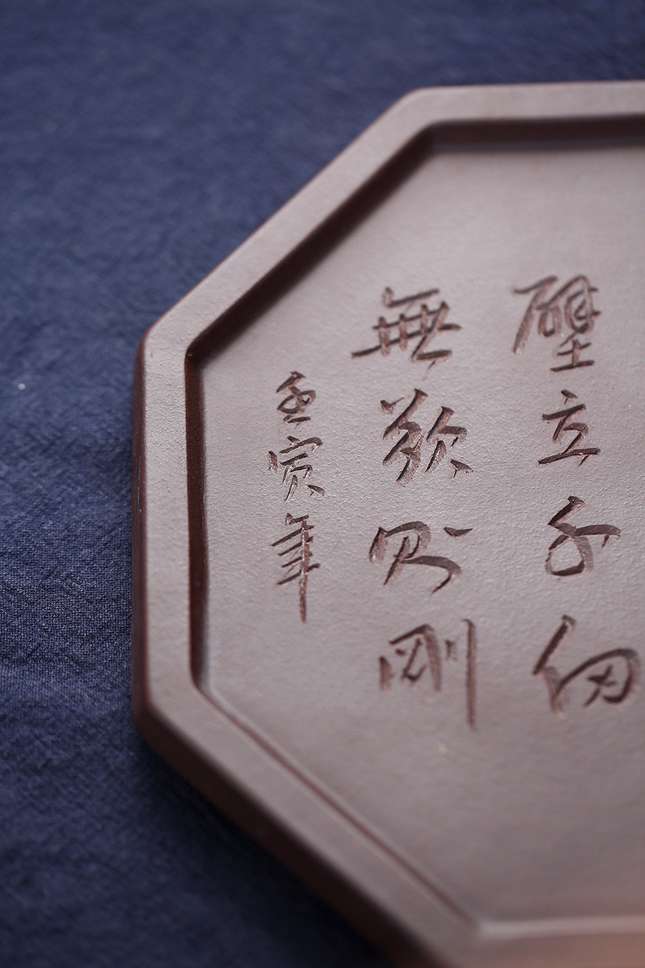 壁立千仞
無欲則剛
壬寅年